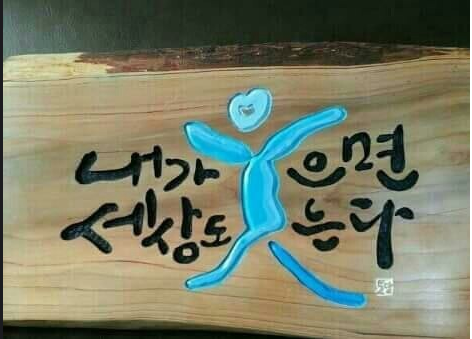 내가 웃으면
세상도 웃는다